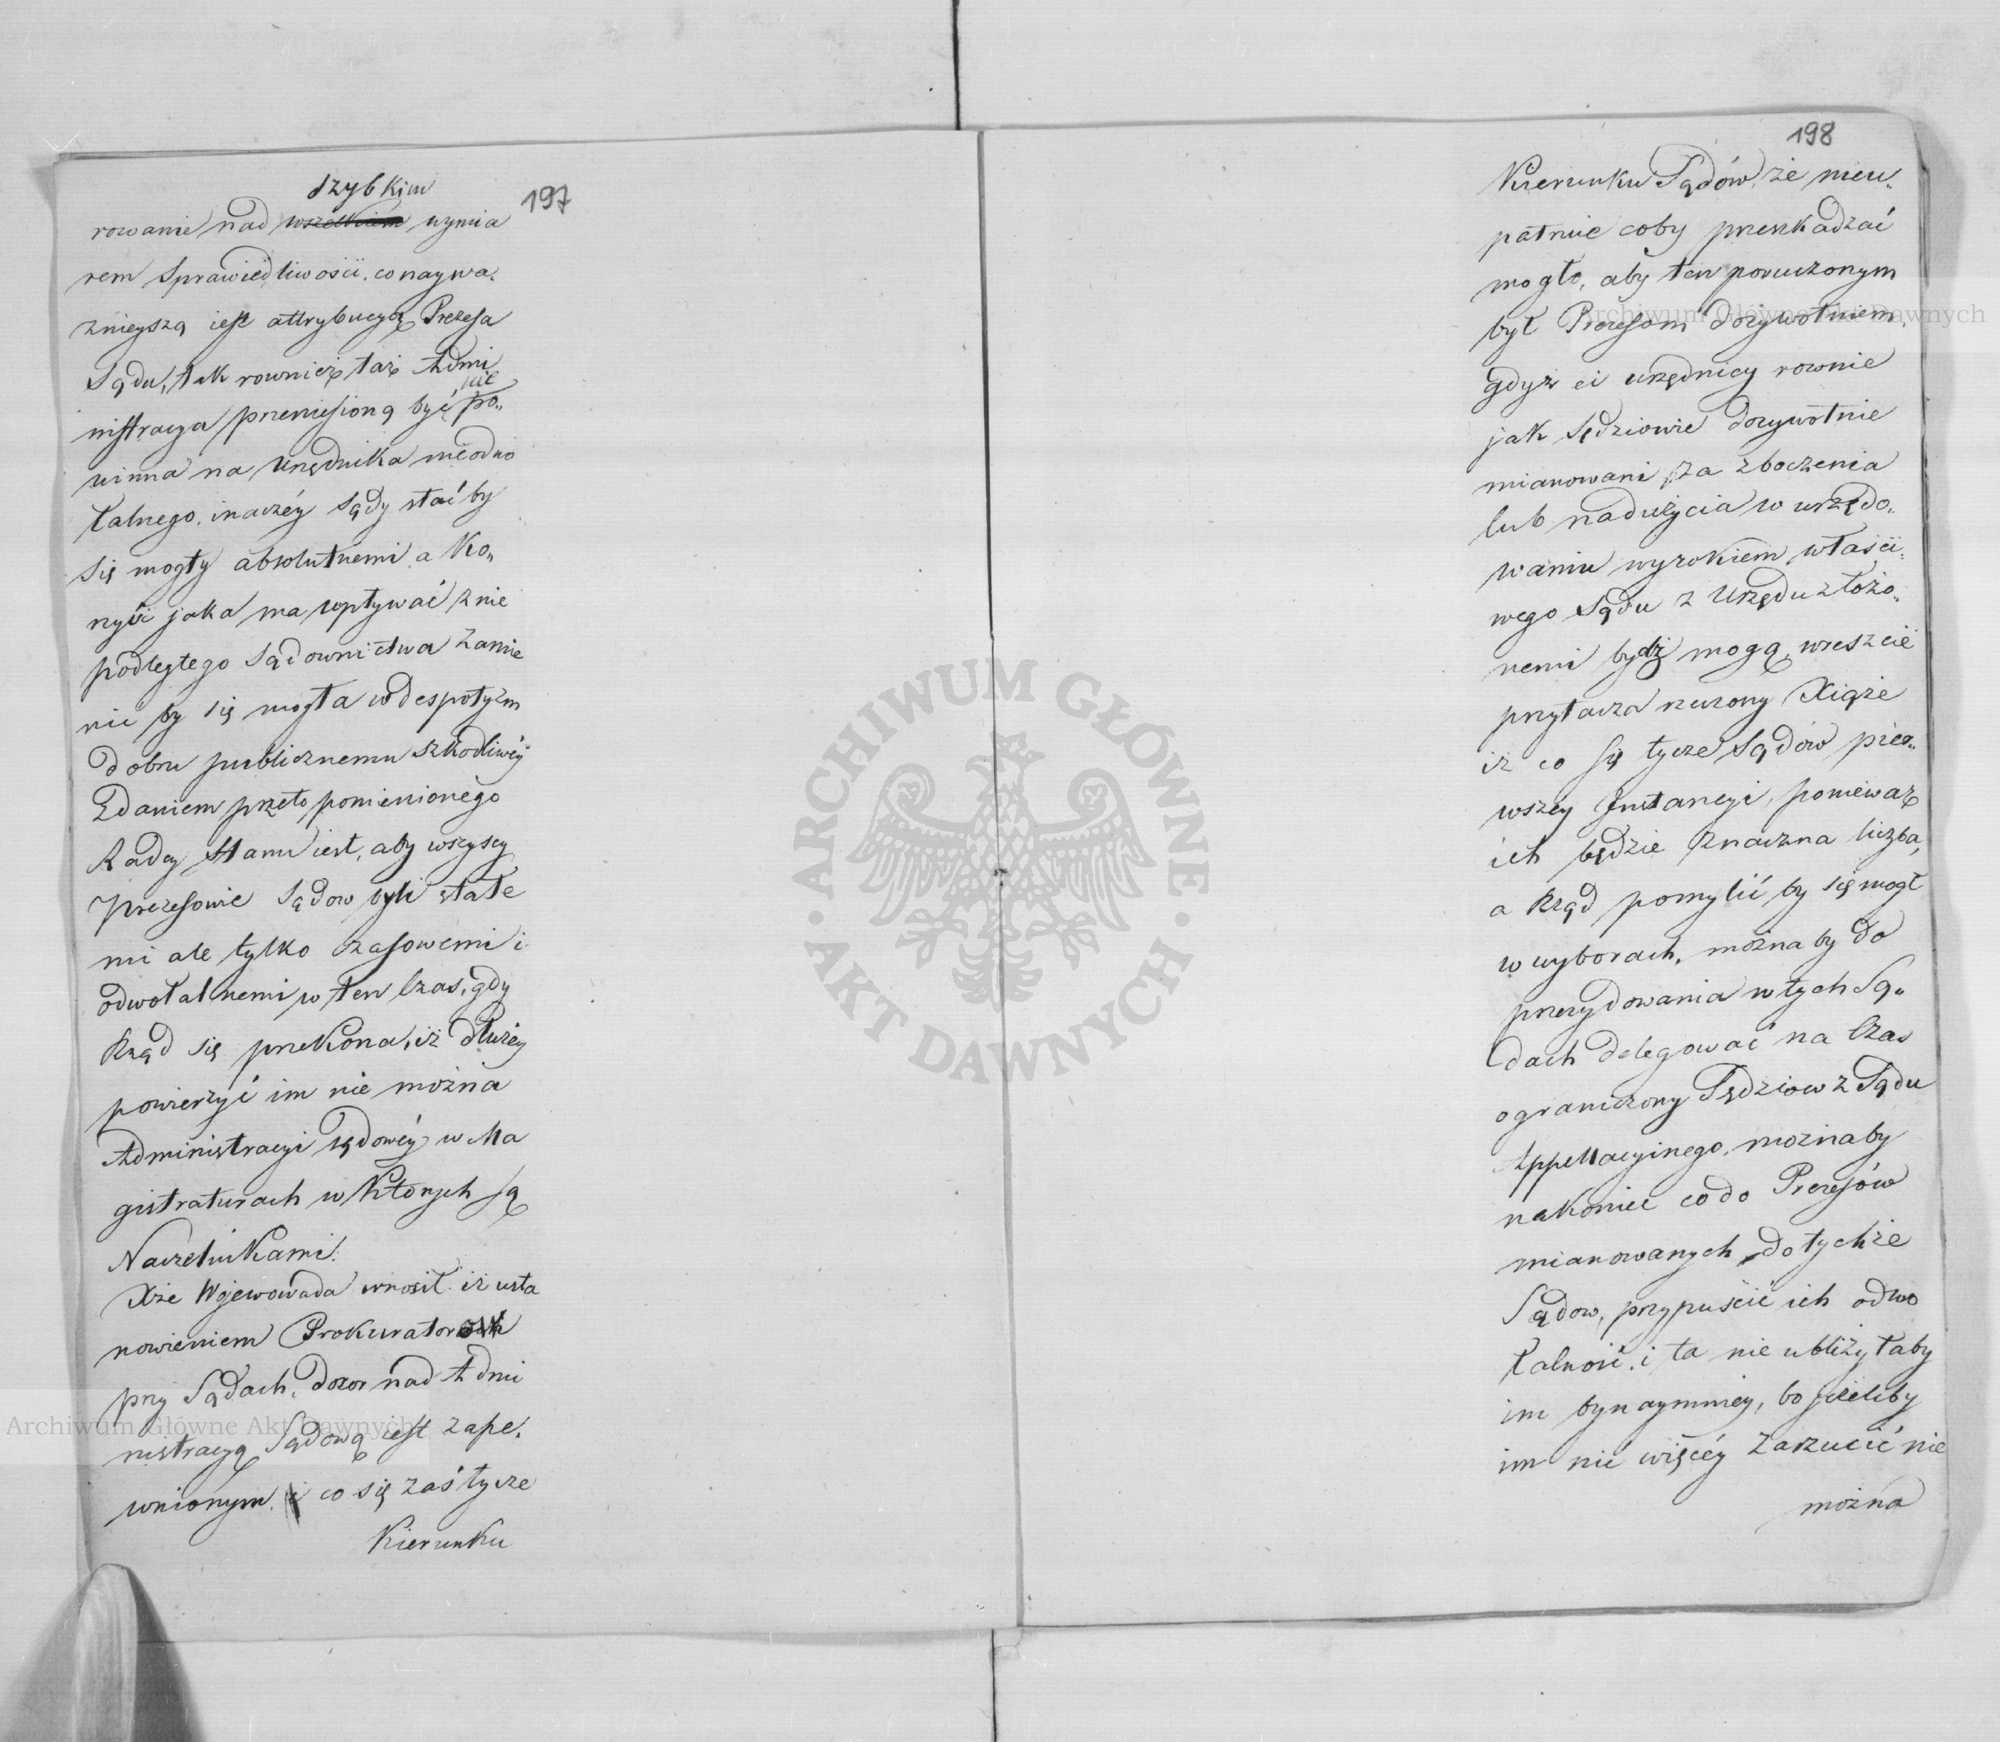 197
szybkim
rowanie nad wszelkiém wymia
rem Sprawiedliwości, co naywa„
żnieyszą iest attrybucyą Prezesa
Sądu, tak rownież taż Admi
nistracya przeniesioną być nie po„
winna na Urzędnika nieodwo
łalnego, inaczéy Sądy stać by
się mogły absolutnemi, a Ko„
rzyść jaka ma wpływać z nie
podległego Sądownictwa zamie
nić by się mogła w despotyzm
dobru publicznemu szkodliwéy
Zdaniem przeto pomienionego
Radcy Stanu iest, aby wszyscy
Prezesowie Sądow byli stałe
mi ale tylko czasowemi i
odwołalnemi w ten Czas, gdy
Rząd się przekona, iż dłużéy
powierzyć im nie można
Administracyi Sądowéy w Ma
gistraturach w których są
Naczelnikami.
Xże Wojewowada wnosił iż usta
nowieniem Prokuratorow
przy Sądach, dozor nad Admi
nistracyą Sądową iest zape„
wnionym. co się zaś tycze
Kierunku
198
Kierunku Sądów, że nieu„
patruie coby przeszkadzać
mogło, aby ten poruczonym
był Prezesom dożywotniem,
gdyż ci urzędnicy rownie
jak Sędziowie dożywotnie
mianowani, za zboczenia
lub nadużycia w urzędo„
waniu wyrokiem właści„
wego Sądu z Urzędu złożo„
nemi bydź mogą, wreszcie
przytacza rzeczony Xiąże
iż co się tycze Sądów pier„
wszéy Instancyi, ponieważ
ich będzie znaczna liczba,
a Rząd pomylić by się mogł
w wyborach, można by do
prezydowania w tych Są„
dach delegować na Czas
ograniczony Sędziow z Sądu
Appellacyinego, możnaby
nakoniec co do Prezesów
mianowanych do tychże
Sądow, przypuścić ich odwo
łalność, i ta nie ubliżyłaby
im bynaymniey, bo jeżeliby
im nic więcéy zarzucić nie
można
ARCHIWUM GŁÓWNE
AKT DAWNYCH
Archiwum Główne Akt Dawnych
Archiwum Główne Akt Dawnych